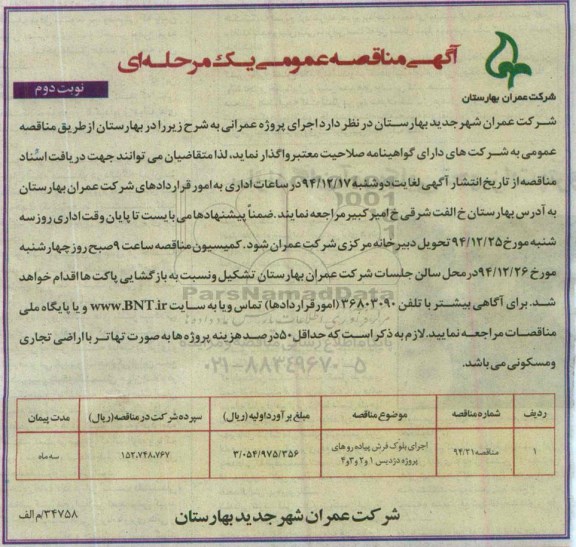 آگهی مناقصه عمومی یک مرحله‌ای
نوبت دوم
شرکت عمران بهارستان
شرکت عمران شهر جدید بهارستان در نظر دارد اجرای پروژه عمرانی به شرح زیر را در بهارستان از طریق مناقصه
عمومی به شرکت های دارای گواهینامه صلاحیت معتبر واگذار نماید، لذا متقاضیان می توانند جهت دریافت اسناد
مناقصه از تاریخ انتشار آگهی لغایت دوشنبه ۹۴/۱۲/۱۷ در ساعات اداری به امور قراردادهای شرکت عمران بهارستان
به آدرس بهارستان خ الفت شرقی خ امیر کبیر مراجعه نمایند. ضمناً پیشنهادها می بایست تا پایان وقت اداری روز سه
شنبه مورخ ۹۴/۱۲/۲۵ تحویل دبیرخانه مرکزی شرکت عمران شود. کمیسیون مناقصه ساعت ۹ صبح روز چهارشنبه
مورخ ۹۴/۱۲/۲۶ در محل سالن جلسات شرکت عمران بهارستان تشکیل و نسبت به بازگشایی پاکت ها اقدام خواهد
شد. برای آگاهی بیشتر با تلفن ۳۶۸۰۳۰۹۰ (امور قراردادها) تماس و یا به سایت www.BNT.ir و یا پایگاه ملی
مناقصات مراجعه نمایید. لازم به ذکر است که حداقل ۵۰ درصد هزینه پروژه ها به صورت تهاتر با اراضی تجاری
و مسکونی می باشد.
ParsNamadData
۰۲۱-۸۸۳۴۹۶۷۰-۵
ردیف شماره مناقصه موضوع مناقصه مبلغ برآورد اولیه (ریال) سپرده شرکت در مناقصه (ریال) مدت پیمان
۱ مناقصه ۹۴/۲۱ اجرای بلوک فرش پیاده رو های پروژه دژدیس ۱ و ۲ و ۳ و ۴ ۳/۰۵۴/۹۷۵/۳۵۶ ۱۵۲,۷۴۸,۷۶۷ سه ماه
شرکت عمران شهر جدید بهارستان
۳۴۷۵۸/م الف